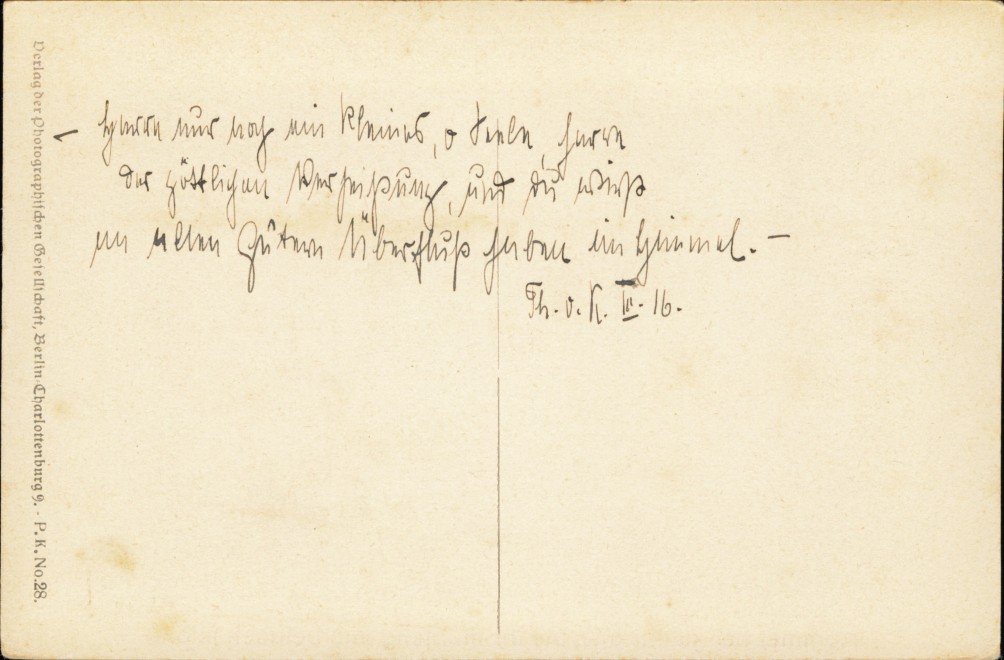 – Harre nur noch ein Kleines, o Seele, harre
der göttlichen Verheißung, und du wirst
an allen Gütern Überfluß haben im Himmel. –
Th. v. K. III. 16.
Verlag der Photographischen Gesellschaft, Berlin-Charlottenburg 9. - P. K. No. 28.